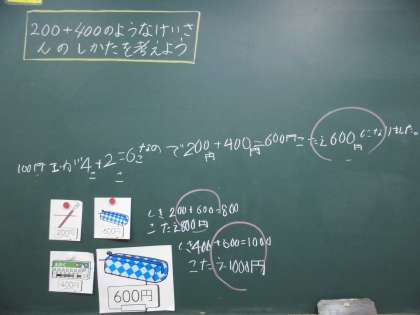 200+400のようなけいさ
んのしかたを考えよう
100円玉が4こ+2こ=6こなので200円+400円=600円こたえ600円になりました。
しき200+600=800
こたえ800円
しき400+600=1000
こたえ1000円
200円
600円
400円
600円